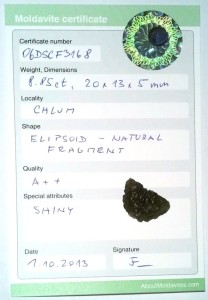 Moldavite certificate
Certificate number
06DSCF3168
Weight, Dimensions
8.85ct, 20x13x5mm
Locality
CHLUM
Shape
ELIPSOID - NATURAL
FRAGMENT
Quality
A++
Special attributes
SHINY
Date
Signature
1.10.2013
AboutMoldavites.com